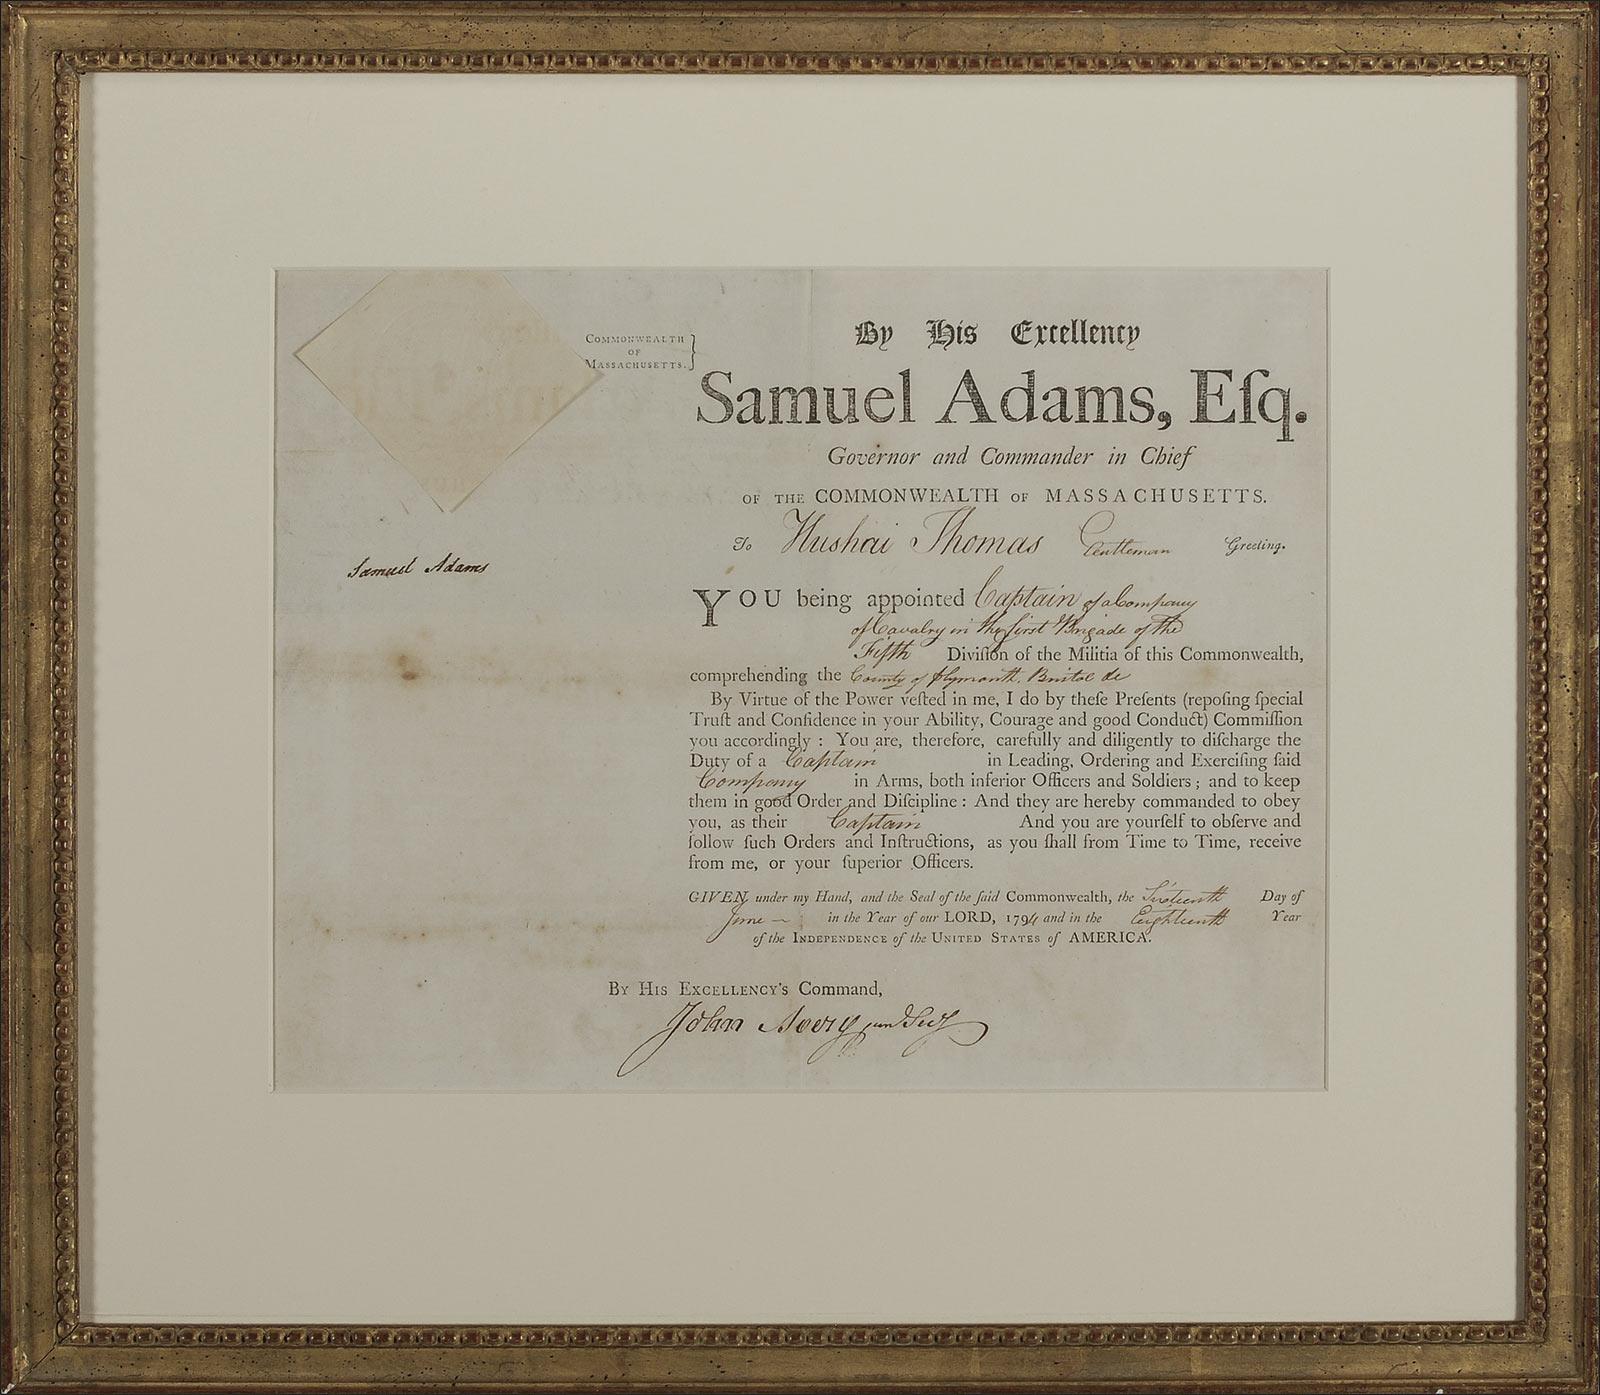 COMMONWEALTH
OF
MASSACHUSETTS.}
By His Excellency
Samuel Adams, Eſq.
Governor and Commander in Chief
OF THE COMMONWEALTH OF MASSACHUSETTS.
To Hushai Thomas Gentleman Greeting.
Samuel Adams
YOU being appointed Captain of a Company
of Cavalry in the first Brigade of the
Fifth Diviſion of the Militia of this Commonwealth,
comprehending the County of Plymouth, Bristol &c
By Virtue of the Power veſted in me, I do by theſe Preſents (repoſing ſpecial
Truſt and Confidence in your Ability, Courage and good Conduct) Commiſſion
you accordingly : You are, therefore, carefully and diligently to diſcharge the
Duty of a Captain in Leading, Ordering and Exerciſing ſaid
Company in Arms, both inferior Officers and Soldiers ; and to keep
them in good Order and Diſcipline : And they are hereby commanded to obey
you, as their Captain And you are yourſelf to obſerve and
follow ſuch Orders and Inſtructions, as you ſhall from Time to Time, receive
from me, or your ſuperior Officers.
GIVEN under my Hand, and the Seal of the ſaid Commonwealth, the Sixteenth Day of
June in the Year of our LORD, 1794 and in the Eighteenth Year
of the INDEPENDENCE of the UNITED STATES of AMERICA.
BY HIS EXCELLENCY'S Command,
John Avery jun Secy